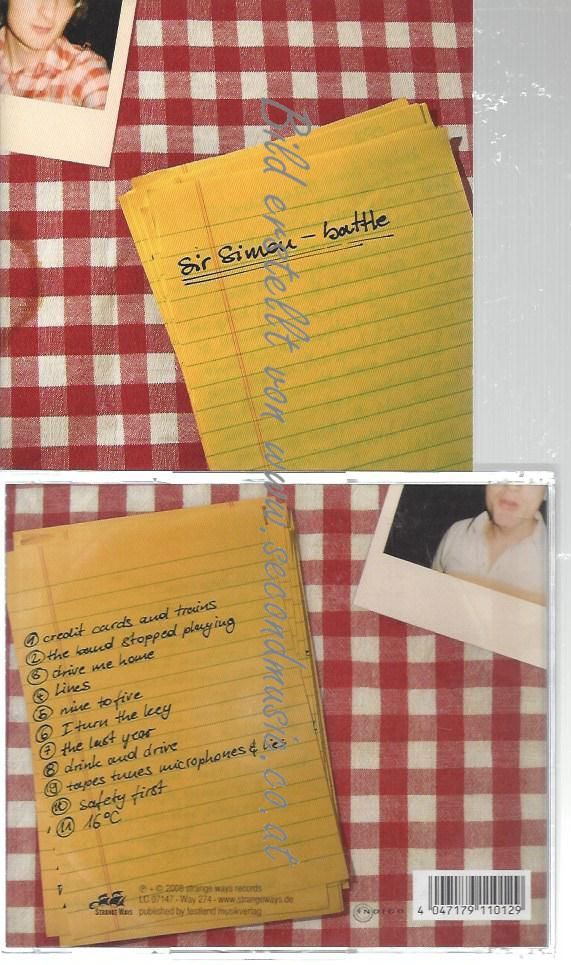 sir simon - battle
Bild erstellt von www.secondmusic.co.at
1 credit cards and trains
2 the band stopped playing
3 drive me home
4 lines
5 nine to five
6 I turn the key
7 the last year
8 drink and drive
9 tapes tunes microphones & lies
10 safety first
11 16°C
STRANGE WAYS
℗ + © 2008 strange ways records
LC 07147 - Way 274 - www.strangeways.de
published by festland musikverlag
INDIGO
4 047179 110129